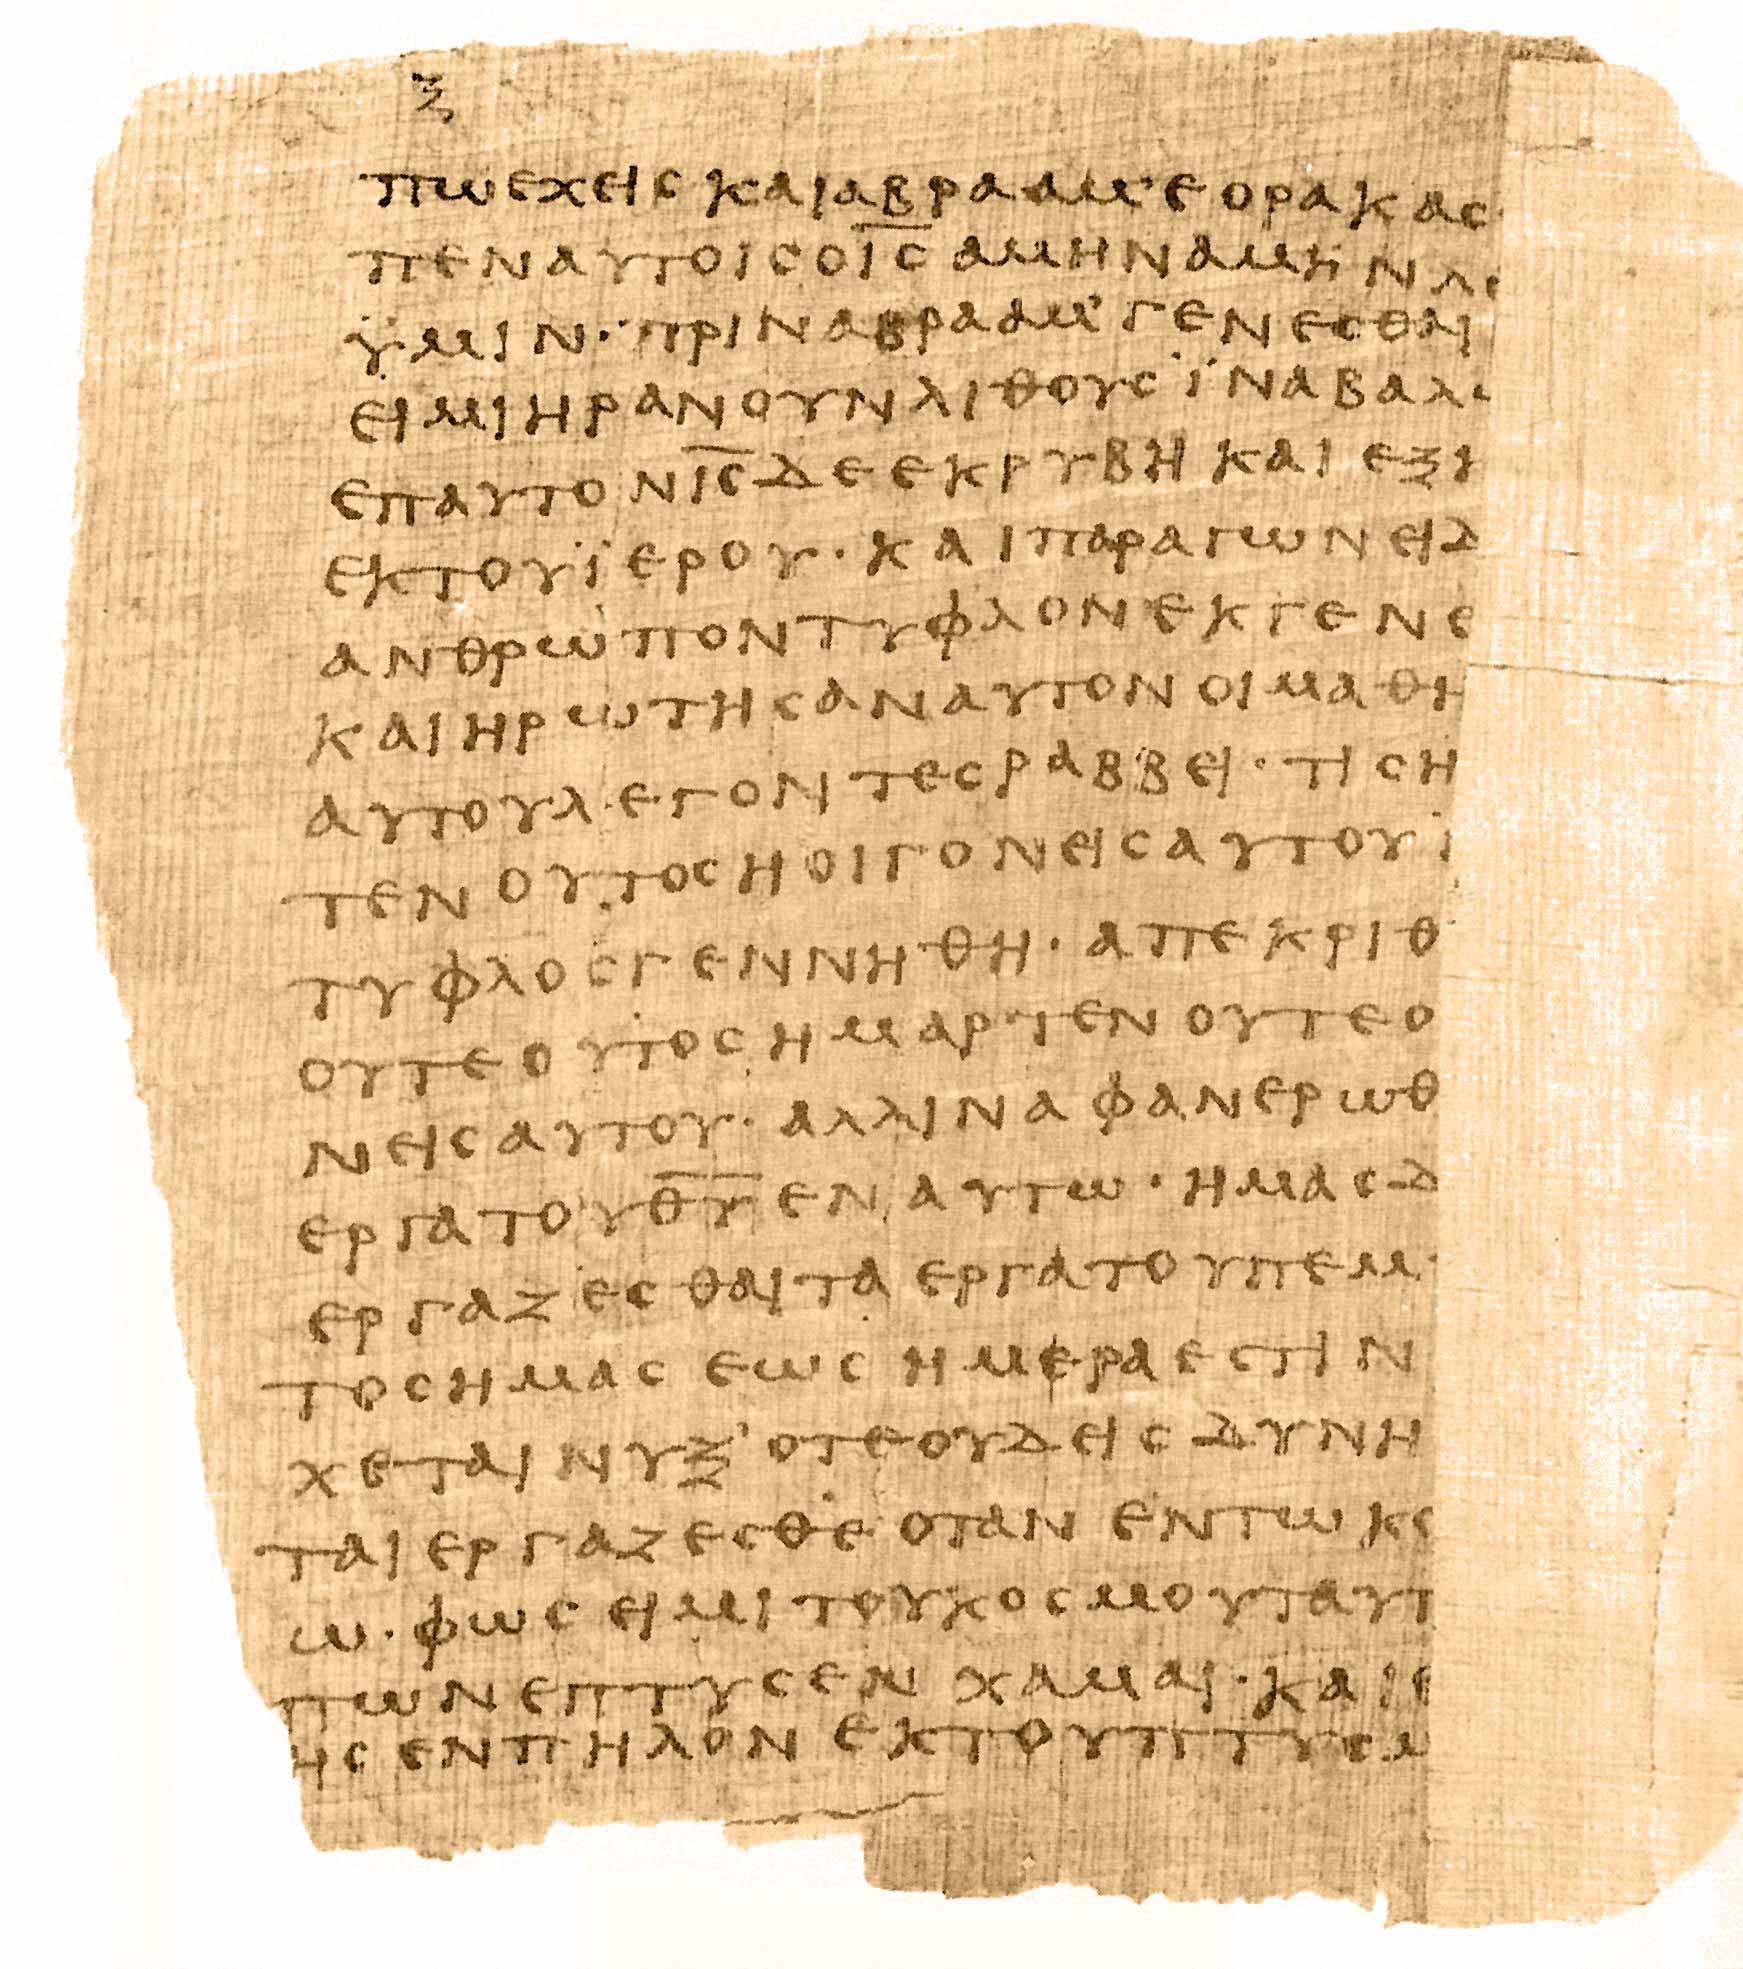 ξ
πωεχειςκαιαβρααμ᾽εορακας
πεναυτοιςοι̅ς̅αμηναμηνλε
ϋμιν·πριναβρααμ᾽γενεςθαι
ειμιηρανουνλιθουςϊναβαλ
επαυτονι̅ς̅δεεκρυβηκαιεξη
εκτουϊερου·καιπαραγωνειδ
ανθρωποντυφλονεκγενε
καιηρωτηςαναυτονοιμαθη
αυτουλεγοντεςραββει·τιςη
τενουτοςηοιγονειςαυτουϊ
τυφλοςγεννηθη·απεκριθ
ουτεουτοςημαρτενουτεο
νειςαυτου·αλλιναφανερωθ
εργατουθ̅υ̅εναυτω·ημαςδ
εργαζεςθαιταεργατουπεμ
τοςημαςεωςημεραεςτιν
χεταινυξ᾽οτεουδειςδυνη
ταιεργαζεςθεοτανεντωκο
ω·φωςειμιτουκοςμουταυτ
πωνεπτυςενχαμαι·καιε
ηςενπηλονεκτουπτυςμ